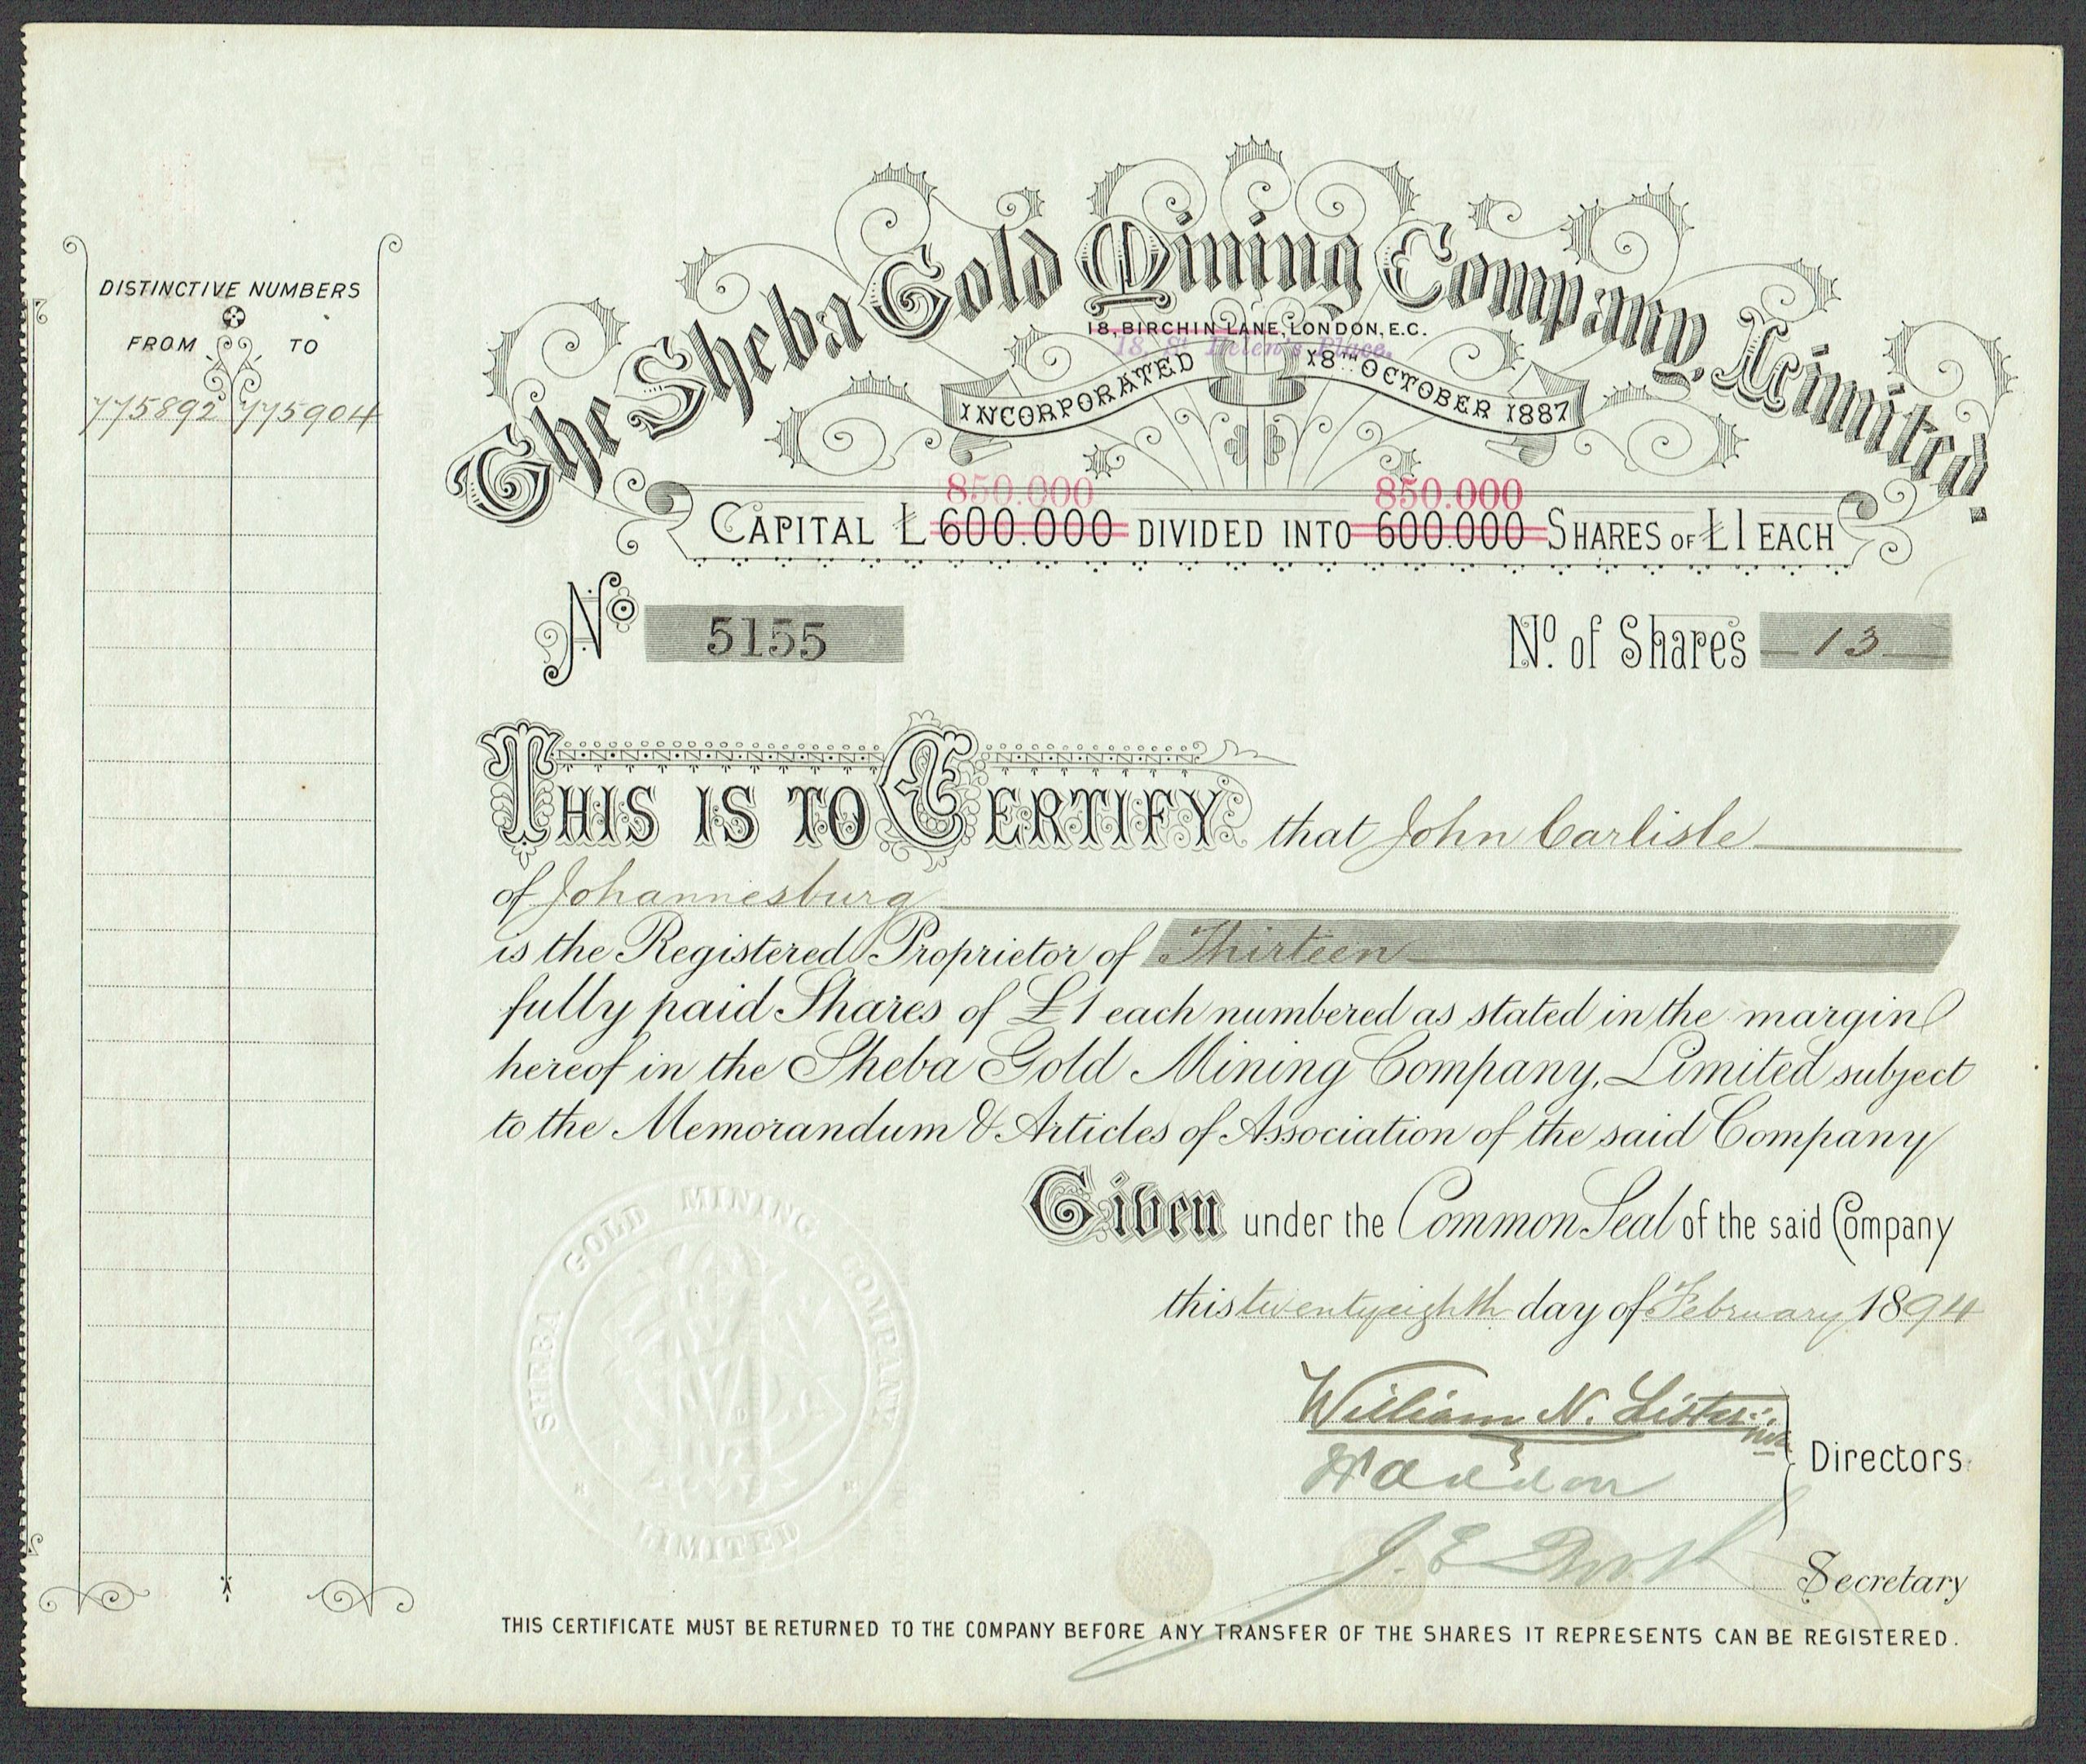 The Sheba Gold Mining Company, Limited.
18, BIRCHIN LANE, LONDON, E.C.
18, St. Helen's Place.
INCORPORATED 18TH OCTOBER 1887
850.000 850.000
CAPITAL £ 600.000 DIVIDED INTO 600.000 SHARES OF £1 EACH
DISTINCTIVE NUMBERS
FROM TO
775892 775904
No 5155
No. of Shares 13
THIS IS TO CERTIFY that John Carlisle
of Johannesburg
is the Registered Proprietor of Thirteen
fully paid Shares of £1 each numbered as stated in the margin
hereof in the Sheba Gold Mining Company, Limited subject
to the Memorandum & Articles of Association of the said Company
Given under the Common Seal of the said Company
this twentyeighth day of February 1894
SHEBA GOLD MINING COMPANY
LIMITED
William N. Lister
Directors.
J. E.
Secretary
THIS CERTIFICATE MUST BE RETURNED TO THE COMPANY BEFORE ANY TRANSFER OF THE SHARES IT REPRESENTS CAN BE REGISTERED.